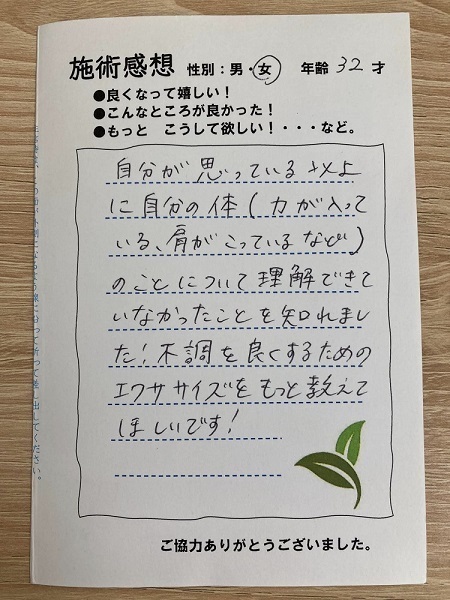 施術感想 性別：男・女 年齢 32 才
●良くなって嬉しい！
●こんなところが良かった！
●もっと こうして欲しい！・・・など。
自分が思っている以上
に自分の体(力が入って
いる、肩がこっているなど)
のことについて理解できて
いなかったことを知れまし
た！不調を良くするための
エクササイズをもっと教えて
ほしいです！
ご協力ありがとうございました。